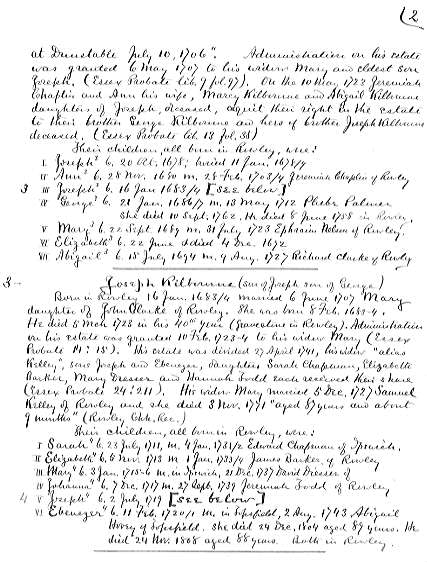 (2
at Dunstable July 10, 1706". Administration on his estate
was granted 6 May 1707 to his widow Mary and eldest son
Joseph. (Essex Probate Lib. 9 fol. 97). On the 10 Mar. 1723 Jeremiah
Chaplin and Ann his wife, Marcy Kilbourne and Abigail Kilbourne
daughters of Joseph, deceased, acquit their right in the estate
to their brother George Kilbourne and heirs of brother Joseph Kilbourne
deceased, (Essex Probate Lib. 13 fol. 38)
Their children, all born in Rowley, were:
I Joseph³ b. 20 Oct. 1678; buried 11 Jan. 1678/9
II Ann³ b. 28 Nov. 1680 m. 28 Feb. 1703/4 Jeremiah Chaplin of Rowley
3 III Joseph³ b. 16 Jan 1683/4 [see below]
IV George³ b. 21 Jan. 1686/7 m. 13 May 1712 Phebe Palmer
She died 10 Sept. 1762. He died 8 June 1758 in Rowley.
V Mary³ b. 22 Sept 1689 m. 31 July 1723 Ephraim Nelson of Rowley.
VI Elizabeth³ b. 22 June & died 4 Dec. 1692
VII Abigail³ b. 15 July 1694 m. 9 Aug. 1727 Richard Clarke of Rowley
3 Joseph Kilbourne (son of Joseph son of George)
Born in Rowley 16 Jan. 1683/4 married 6 June 1707 Mary
daughter of John Clarke of Rowley. She was born 8 Feb. 1683-4.
He died 5 Mch 1723 in his 40th year (gravestone in Rowley). Administration
on his estate was granted 10 Feb. 1723-4 to his widow Mary (Essex
Probate 14: 15). His estate was divided 27 April 1741, his widow "alias
Kelley", sons Joseph and Ebenezer, daughters Sarah Chapman, Elizabeth
Barker, Mary Dresser and Hannah Todd each received their share
(Essex Probate 24: 211). His widow Mary married 5 Dec. 1727 Samuel
Kelley of Rowley and she died 3 Nov. 1771 "aged 87 years and about
9 months" (Rowley Chh. Rec.)
Their children, all born in Rowley, were:
I Sarah⁴ b. 23 July 1711, m. 4 Jan. 1731/2 Edward Chapman of Ipswich.
II Elizabeth⁴ b. 6 Nov. 1713 m. 1 Jan. 1733/4 James Barker of Rowley
III Mary⁴ b. 3 Jan. 1715-6 m. in Ipswich, 21 Dec. 1737 David Dresser of
IV Johanna⁴ b. 7 Dec. 1717 m. 27 Sept. 1739 Jeremiah Todd of Rowley
4 V Joseph⁴ b. 2 July 1719 [see below]
VI Ebenezer⁴ b. 11 Feb. 1720/1 m. in Topsfield, 2 Aug. 1743 Abigail
Hovey of Topsfield. She died 24 Dec. 1804 aged 87 years. He
died 24 Nov. 1808 aged 88 years. Both in Rowley.